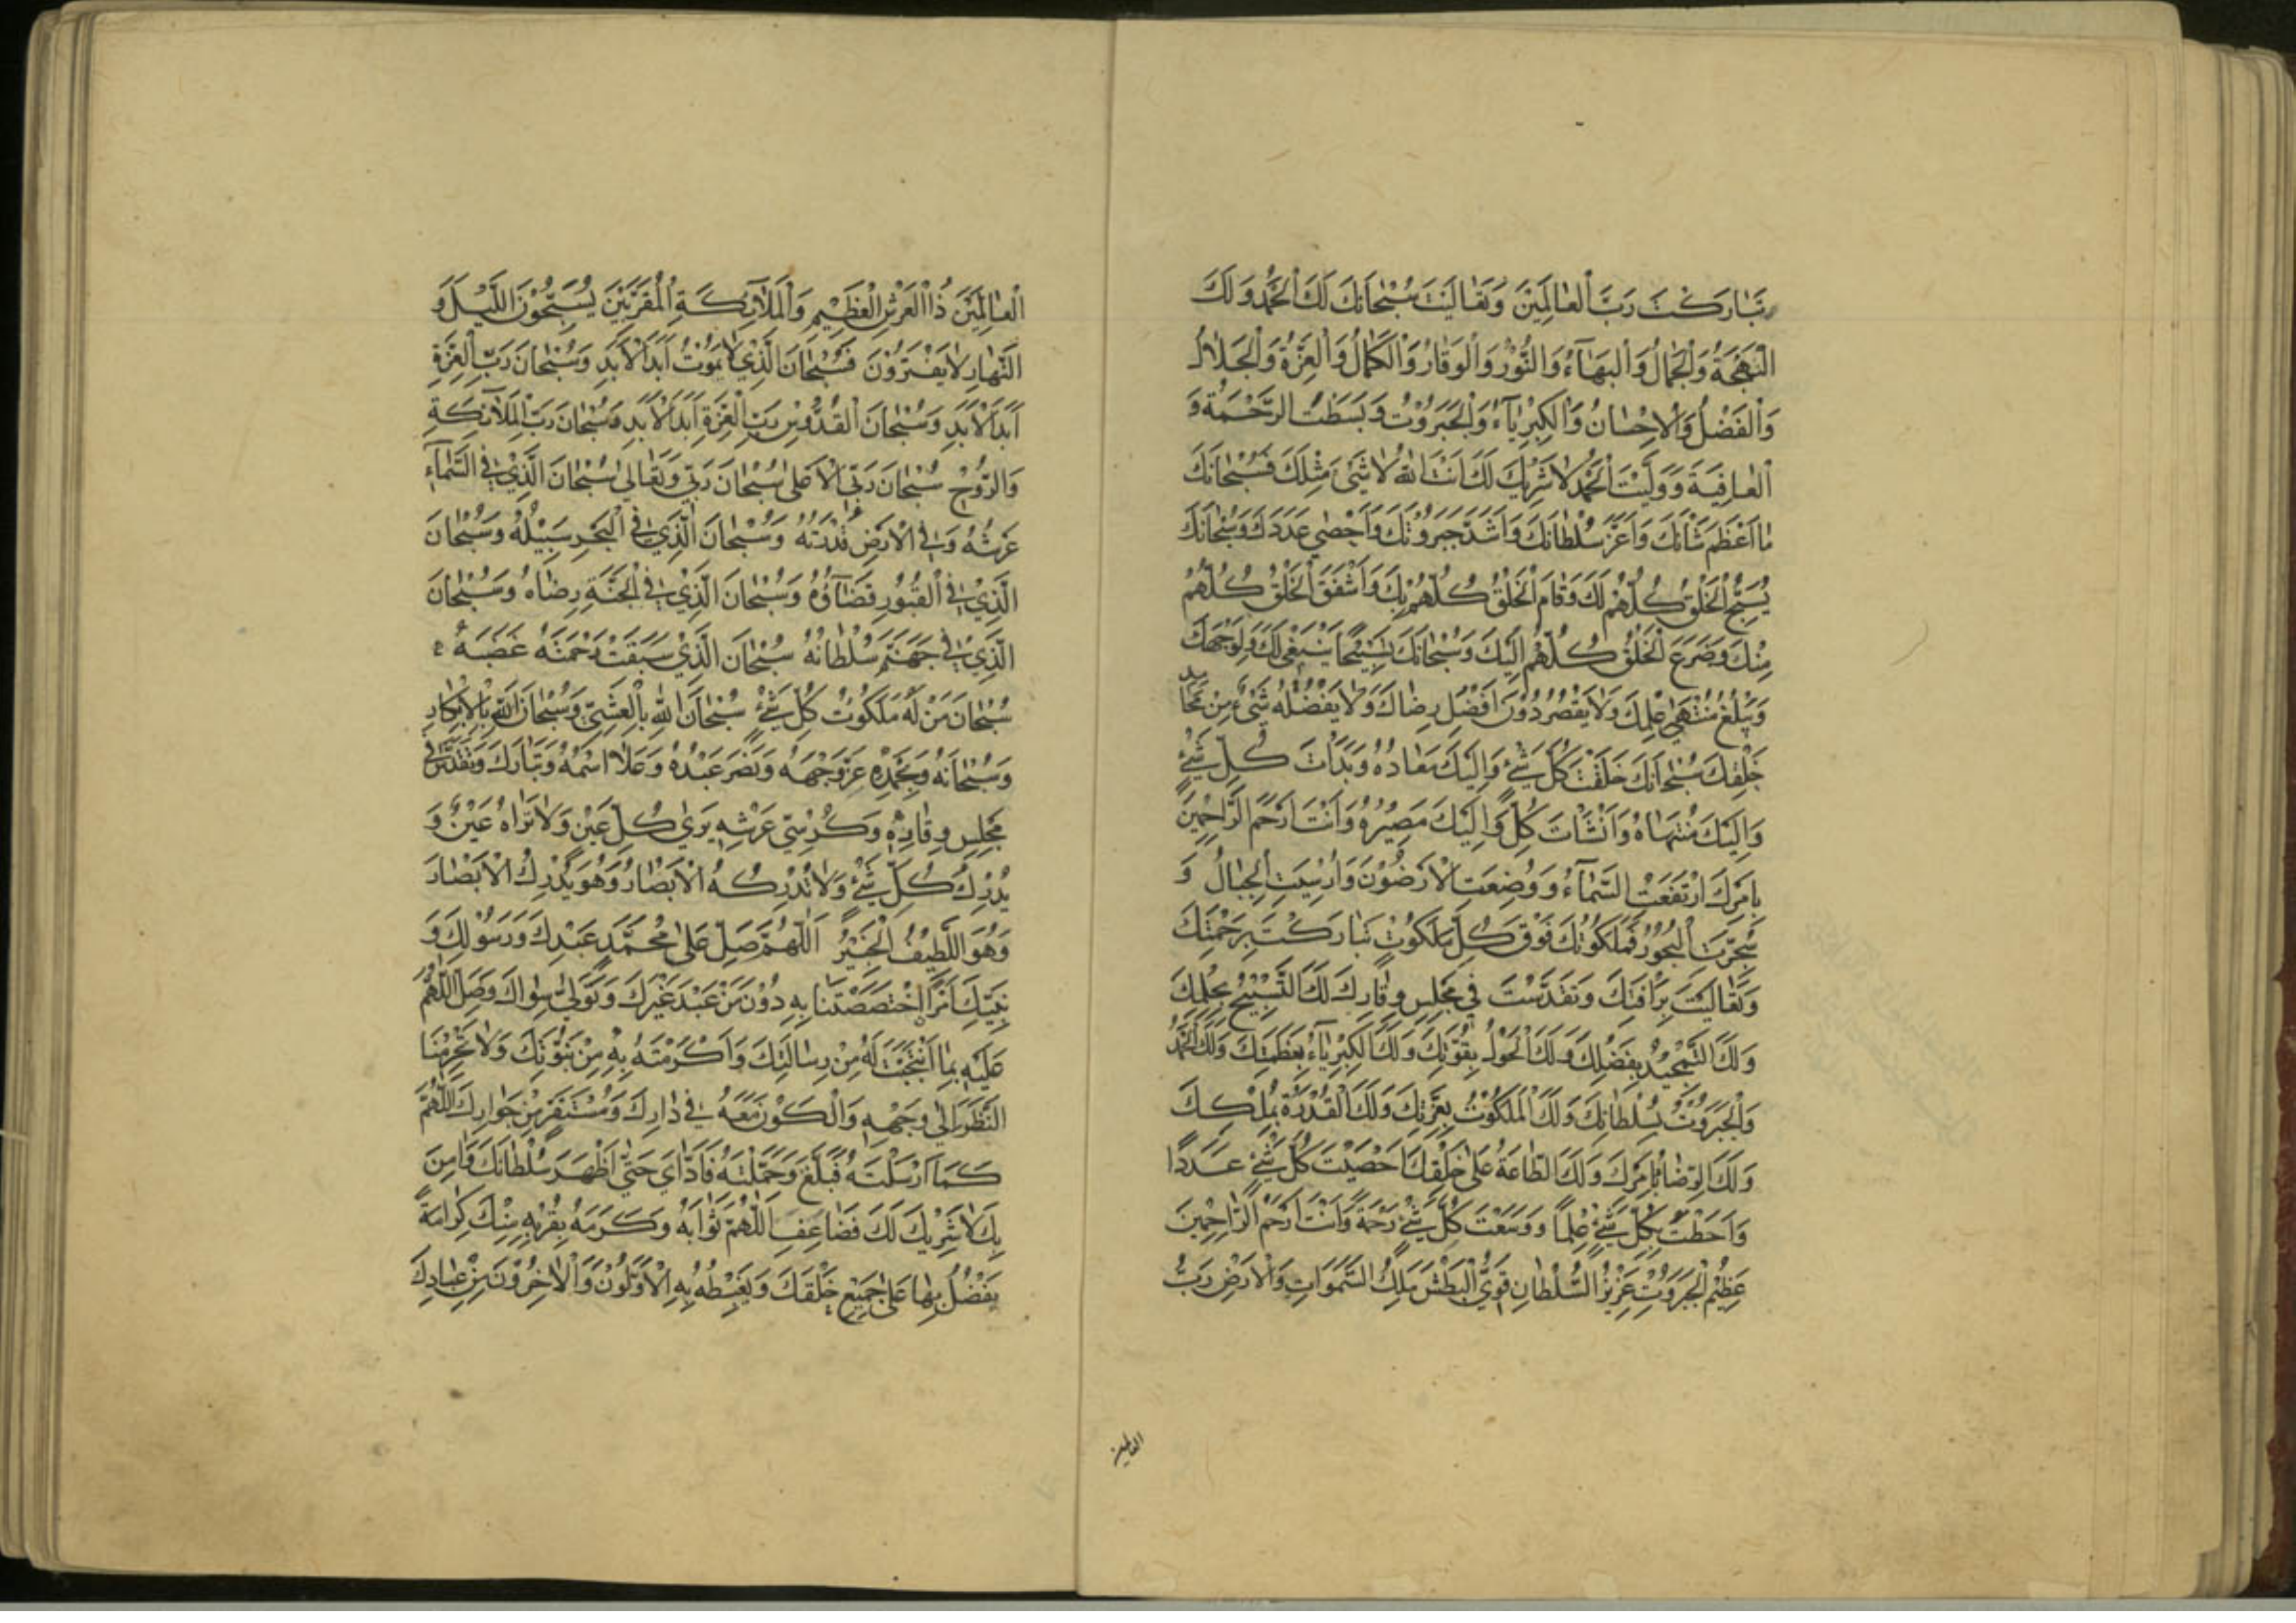 تَبَارَكْتَ رَبَّ الْعَالَمِينَ وَتَعَالَيْتَ سُبْحَانَكَ لَكَ الْحَمْدُ وَلَكَ
الْبَهْجَةُ وَالْجَمَالُ وَالْبَهَآءُ وَالنُّورُ وَالْوَقَارُ وَالْكَمَالُ وَالْعِزَّةُ وَالْجَلَالُ
وَالْفَضْلُ وَالْاِحْسَانُ وَالْكِبْرِيَآءُ وَالْجَبَرُوتُ وَبَسَطْتَ الرَّحْمَةَ وَ
الْعَافِيَةَ وَوَلَّيْتَ الْحَمْدَ لَا شَرِيكَ لَكَ اَنْتَ اللهُ لَا شَيْءَ مِثْلُكَ فَسُبْحَانَكَ
مَا اَعْظَمَ شَأْنَكَ وَاَعَزَّ سُلْطَانَكَ وَاَشَدَّ جَبَرُوتَكَ وَاَحْصَى عَدَدَكَ وَسُبْحَانَكَ
يُسَبِّحُ الْخَلْقُ كُلُّهُمْ لَكَ وَقَامَ الْخَلْقُ كُلُّهُمْ بِكَ وَاَشْفَقَ الْخَلْقُ كُلُّهُمْ
مِنْكَ وَضَرَعَ الْخَلْقُ كُلُّهُمْ اِلَيْكَ وَسُبْحَانَكَ تَسْبِيحًا يَنْبَغِي لَكَ وَلِوَجْهِكَ
وَيَبْلُغُ مُنْتَهَى عِلْمِكَ وَلَا يَقْصُرُ دُونَ اَفْضَلِ رِضَاكَ وَلَا يَفْضُلُهُ شَيْءٌ مِنْ مَحَامِدِ
خَلْقِكَ سُبْحَانَكَ خَلَقْتَ كُلَّ شَيْءٍ وَاِلَيْكَ مَعَادُهُ وَبَدَأْتَ كُلَّ شَيْءٍ
وَاِلَيْكَ مُنْتَهَاهُ وَاَنْشَأْتَ كُلَّ وَاِلَيْكَ مَصِيرُهُ وَاَنْتَ اَرْحَمُ الرَّاحِمِينَ
بِاَمْرِكَ ارْتَفَعَتْ السَّمَآءُ وَوُضِعَتِ الْاَرَضُونَ وَاُرْسِيَتِ الْجِبَالُ وَ
سُجِّرَتِ الْبُحُورُ فَمَلَكُوتُكَ فَوْقَ كُلِّ مَلَكُوتٍ تَبَارَكْتَ بِرَحْمَتِكَ
وَتَعَالَيْتَ بِرَأْفَتِكَ وَتَقَدَّسْتَ فِي مَجْلِسِ وَقَارِكَ لَكَ التَّسْبِيحُ بِحِلْمِكَ
وَلَكَ التَّمْجِيدُ بِفَضْلِكَ وَلَكَ الْحَوْلُ بِقُوَّتِكَ وَلَكَ الْكِبْرِيَآءُ بِعَظَمَتِكَ وَلَكَ الْحَمْدُ
وَالْجَبَرُوتُ بِسُلْطَانِكَ وَلَكَ الْمَلَكُوتُ بِعِزَّتِكَ وَلَكَ الْقُدْرَةُ بِمُلْكِكَ
وَلَكَ الرِّضَا بِاَمْرِكَ وَلَكَ الطَّاعَةُ عَلَى خَلْقِكَ اَحْصَيْتَ كُلَّ شَيْءٍ عَدَدًا
وَاَحَطْتَ بِكُلِّ شَيْءٍ عِلْمًا وَوَسِعْتَ كُلَّ شَيْءٍ رَحْمَةً وَاَنْتَ اَرْحَمُ الرَّاحِمِينَ
عَظِيمُ الْجَبَرُوتِ عَزِيزُ السُّلْطَانِ قَوِيُّ الْبَطْشِ مَلِكُ السَّمٰوَاتِ وَالْاَرْضِ رَبُّ
العالمين
الْعَالَمِينَ ذُا الْعَرْشِ الْعَظِيمِ وَالْمَلَآئِكَةِ الْمُقَرَّبِينَ يُسَبِّحُونَ اللَّيْلَ وَ
النَّهَارِ لَا يَفْتُرُونَ فَسُبْحَانَ الَّذِي لَا يَمُوتُ اَبَدَ الْاَبَدِ وَسُبْحَانَ رَبِّ الْعِزَّةِ
اَبَدَ الْاَبَدِ وَسُبْحَانَ الْقُدُّوسِ رَبِّ الْعِزَّةِ اَبَدَ الْاَبَدِ وَسُبْحَانَ رَبِّ الْمَلَآئِكَةِ
وَالرُّوحِ سُبْحَانَ رَبِّيَ الْاَعْلَى سُبْحَانَ رَبِّي وَتَعَالَى سُبْحَانَ الَّذِي فِي السَّمَآءِ
عَرْشُهُ وَفِي الْاَرْضِ قُدْرَتُهُ وَسُبْحَانَ الَّذِي فِي الْبَحْرِ سَبِيلُهُ وَسُبْحَانَ
الَّذِي فِي الْقُبُورِ قَضَآؤُهُ وَسُبْحَانَ الَّذِي فِي الْجَنَّةِ رِضَاهُ وَسُبْحَانَ
الَّذِي فِي جَهَنَّمَ سُلْطَانُهُ سُبْحَانَ الَّذِي سَبَقَتْ رَحْمَتُهُ غَضَبَهُ
سُبْحَانَ مَنْ لَهُ مَلَكُوتُ كُلِّ شَيْءٍ سُبْحَانَ اللهِ بِالْعَشِيِّ وَسُبْحَانَ اللهِ بِالْاِبْكَارِ
وَسُبْحَانَهُ وَبِحَمْدِهِ عَزَّ وَجْهُهُ وَنَصَرَ عَبْدَهُ وَعَلَا اسْمُهُ وَتَبَارَكَ وَتَقَدَّسَ فِي
مَجْلِسِ وِقَارِهِ وَكُرْسِيِّ عَرْشِهِ يَرَى كُلَّ عَيْنٍ وَلَا تَرَاهُ عَيْنٌ وَ
يُدْرِكُ كُلَّ شَيْءٍ وَلَا تُدْرِكُهُ الْاَبْصَارُ وَهُوَ يُدْرِكُ الْاَبْصَارَ
وَهُوَ اللَّطِيفُ الْخَبِيرُ اَللّٰهُمَّ صَلِّ عَلَى مُحَمَّدٍ عَبْدِكَ وَرَسُولِكَ وَ
نَبِيِّكَ اَمْرًا اخْتَصَصْتَنَا بِهِ دُونَ مَنْ عَبَدَ غَيْرَكَ وَتَوَلَّى سِوَاكَ وَصَلِّ اللّٰهُمَّ
عَلَيْهِ بِمَا انْتَجَبْتَ لَهُ مِنْ رِسَالَتِكَ وَاَكْرَمْتَهُ بِهِ مِنْ نُبُوَّتِكَ وَلَا تَحْرِمْنَا
النَّظَرَ اِلَى وَجْهِهِ وَالْكَوْنَ مَعَهُ فِي دَارِكَ وَمُسْتَقَرٍّ مِنْ جِوَارِكَ اللّٰهُمَّ
كَمَا اَرْسَلْتَهُ فَبَلَّغَ وَحَمَّلْتَهُ فَاَدَّاىَ حَتَّى اَظْهَرَ سُلْطَانَكَ وَاٰمَنَ
بِكَ لَا شَرِيكَ لَكَ فَضَاعِفِ اللّٰهُمَّ ثَوَابَهُ وَكَرِّمْهُ بِقُرْبِهِ مِنْكَ كَرَامَةً
يَفْضُلُ بِهَا عَلَى جَمِيعِ خَلْقِكَ وَيَغْبِطُهُ بِهِ الْاَوَّلُونَ وَالْاٰخِرُونَ مِنْ عِبَادِكَ